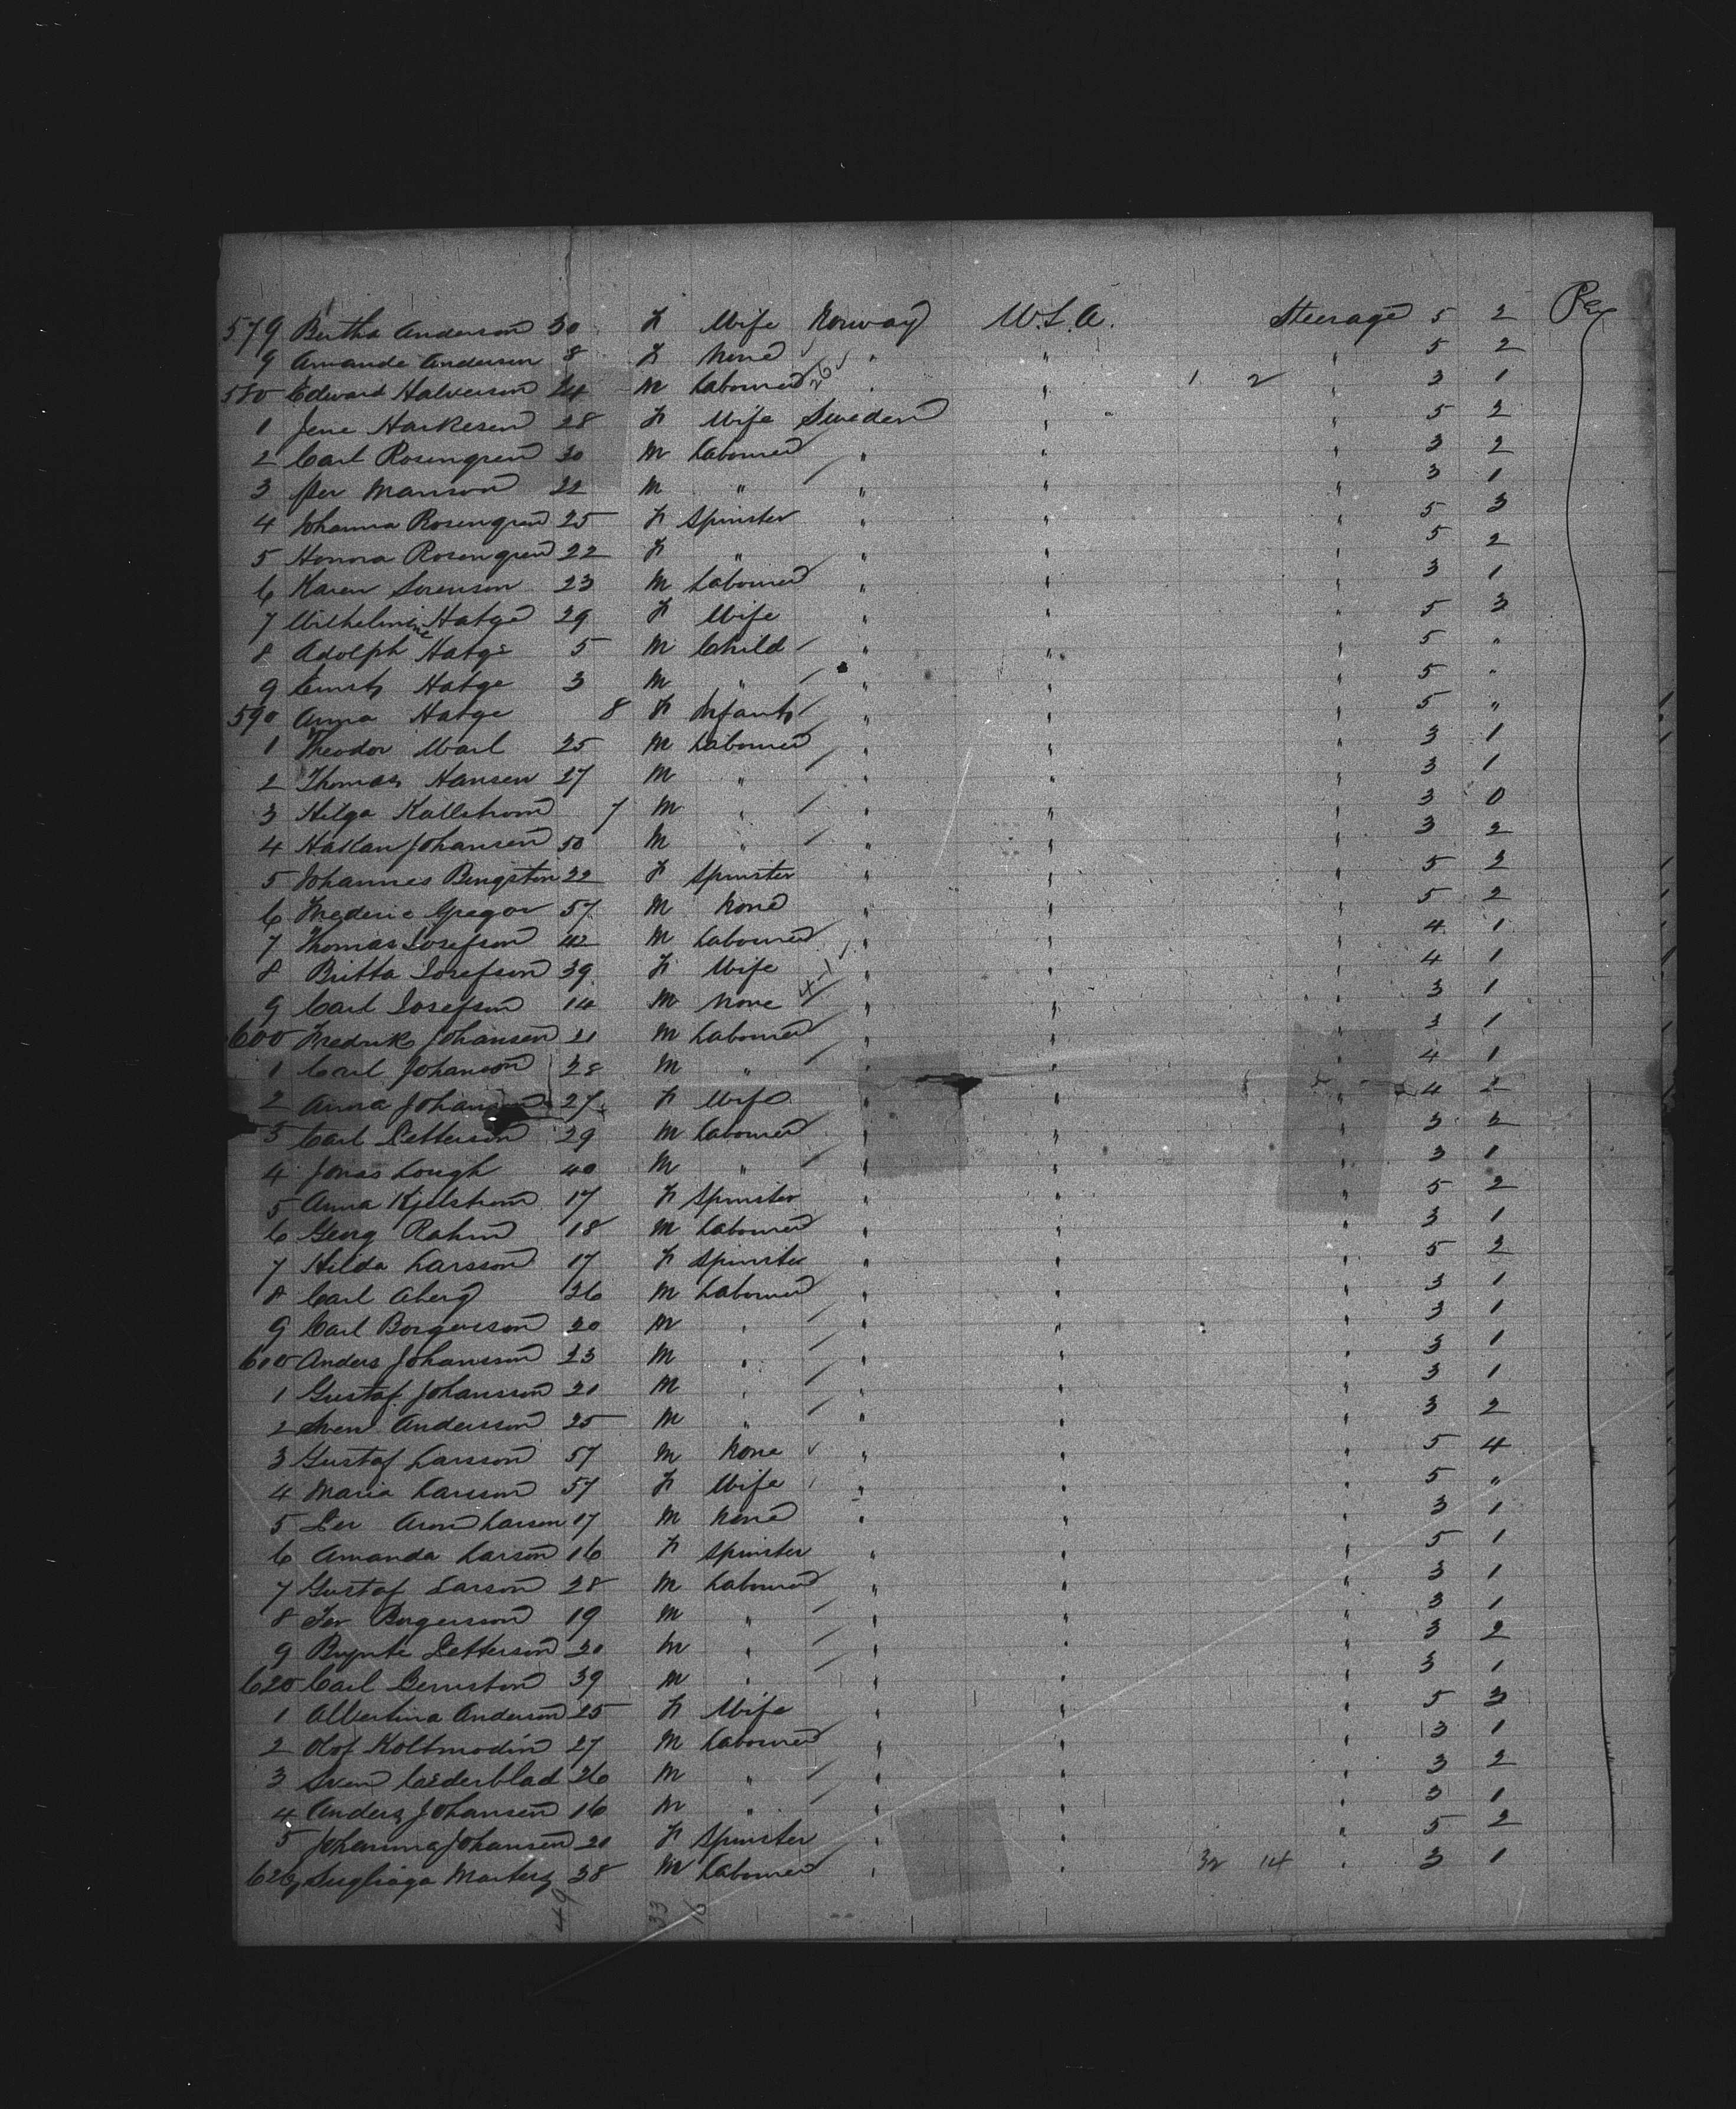 579 Bertha Anderson 30 F Wife Norway U.S.A. Steerage 5 2 Pex
9 Amanda Anderson 8 F None " " " 5 2
580 Edward Halverson 24 M Labourer 26 " " 1 2 " 3 1
1 Jene Haskesen 28 F Wife Sweden " " 5 2
2 Carl Rosengren 30 M Labourer " " " 3 2
3 Per Manson 22 M " " " " 3 1
4 Johanna Rosengren 25 F Spinster " " " 5 3
5 Honora Rosengren 22 F " " " " 5 2
6 Karen Sorenson 23 M Labourer " " " 3 1
7 Wilhelmine Hatge 29 F Wife " " " 5 3
8 Adolph Hatge 5 M Child " " " 5 "
9 Ernst Hatge 3 M " " " " 5 "
590 Anna Hatge 8 F Infant " " " 5 "
1 Theodor Warl 25 M Labourer " " " 3 1
2 Thomas Hansen 27 M " " " " 3 1
3 Hilga Kallstrom 7 M " " " " 3 0
4 Haklan Johansen 50 M " " " " 3 2
5 Johannes Bengston 22 F Spinster " " " 5 2
6 Frederic Gregor 57 M None " " " 5 2
7 Thomas Josefson 42 M Labourer " " " 4 1
8 Britta Josefson 39 F Wife " " " 4 1
9 Carl Josefson 14 M None " " " 3 1
600 Fredrik Johansen 21 M Labourer " " " 3 1
1 Carl Johanson 28 M " " " " 4 1
2 Anna Johanson 27 F Wife " " " 4 2
3 Carl Petterson 29 M Labourer " " " 3 2
4 Jonas Lough 40 M " " " " 3 1
5 Anna Kjelstrom 17 F Spinster " " " 5 2
6 Georg Rahm 18 M Labourer " " " 3 1
7 Hilda Larsson 17 F Spinster " " " 5 2
8 Carl Aberg 26 M Labourer " " " 3 1
9 Carl Borgersson 20 M " " " " 3 1
600 Anders Johansson 23 M " " " " 3 1
1 Gustaf Johansson 21 M " " " " 3 1
2 Sven Andersson 25 M " " " " 3 2
3 Gustaf Larsson 57 M None " " " 5 4
4 Maria Larsson 57 F Wife " " " 5 "
5 Per Aron Larson 17 M None " " " 3 1
6 Amanda Larson 16 F Spinster " " " 5 1
7 Gustaf Larson 28 M Labourer " " " 3 1
8 Borgersson 19 M " " " " 3 1
9 Petterson 20 M " " " " 3 2
620 Carl 39 M " " " " 3 1
1 Albertina Anderson 25 F Wife " " " 5 3
2 Olof Koltmodin 27 M Labourer " " " 3 1
3 Sven Cederblad 26 M " " " " 3 2
4 Anders Johansen 16 M " " " " 3 1
5 Johanna Johansen 20 F Spinster " " " 5 2
626 38 M Labourer " " 32 14 " 3 1
49 33 16